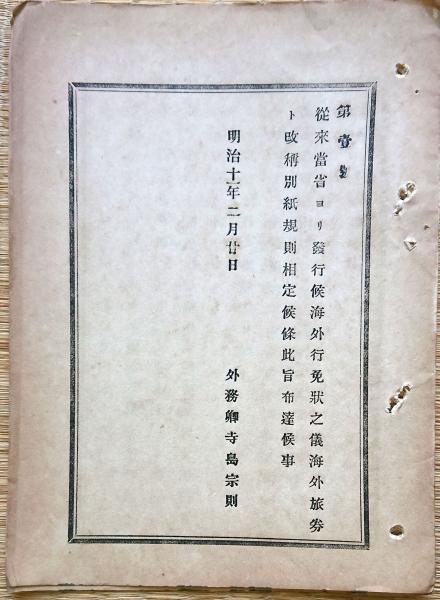 第壹號
從來當省ヨリ發行候海外行免狀之儀海外旅券
ト改稱別紙規則相定候條此旨布達候事
明治十一年二月廿日
外務卿寺島宗則